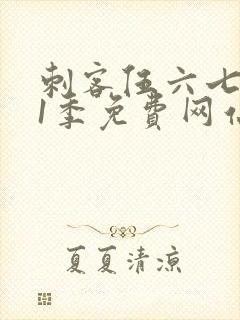 刺客伍六七
1季免费网
夏夏清凉